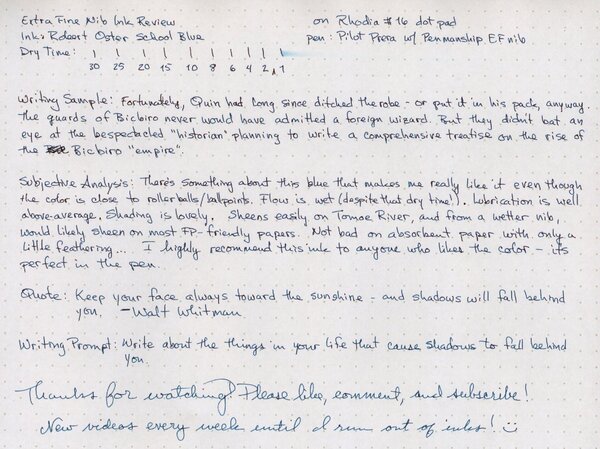 Extra Fine Nib Ink Review on Rhodia #16 dot pad
Ink: Robert Oster School Blue pen: Pilot Prera w/ Penmanship EF nib
Dry Time:
30 25 20 15 10 8 6 4 2 1
Writing Sample: Fortunately, Quin had long since ditched the robe - or put it in his pack, anyway.
The guards of Bicbiro never would have admitted a foreign wizard. But they didn't bat an
eye at the bespectacled "historian" planning to write a comprehensive treatise on the rise of
the Bicbiro "empire".
Subjective Analysis: There's something about this blue that makes me really like it even though
the color is close to rollerballs/ballpoints. Flow is wet (despite that dry time!). Lubrication is well
above-average. Shading is lovely. Sheens easily on Tomoe River, and from a wetter nib,
would likely sheen on most FP-friendly papers. Not bad on absorbent paper with only a
little feathering... I highly recommend this ink to anyone who likes the color - it's
perfect in the pen.
Quote: Keep your face always toward the sunshine - and shadows will fall behind
you. -Walt Whitman
Writing Prompt: Write about the things in your life that cause shadows to fall behind
you.
Thanks for watching! Please like, comment, and subscribe!
New videos every week until I run out of inks! :)